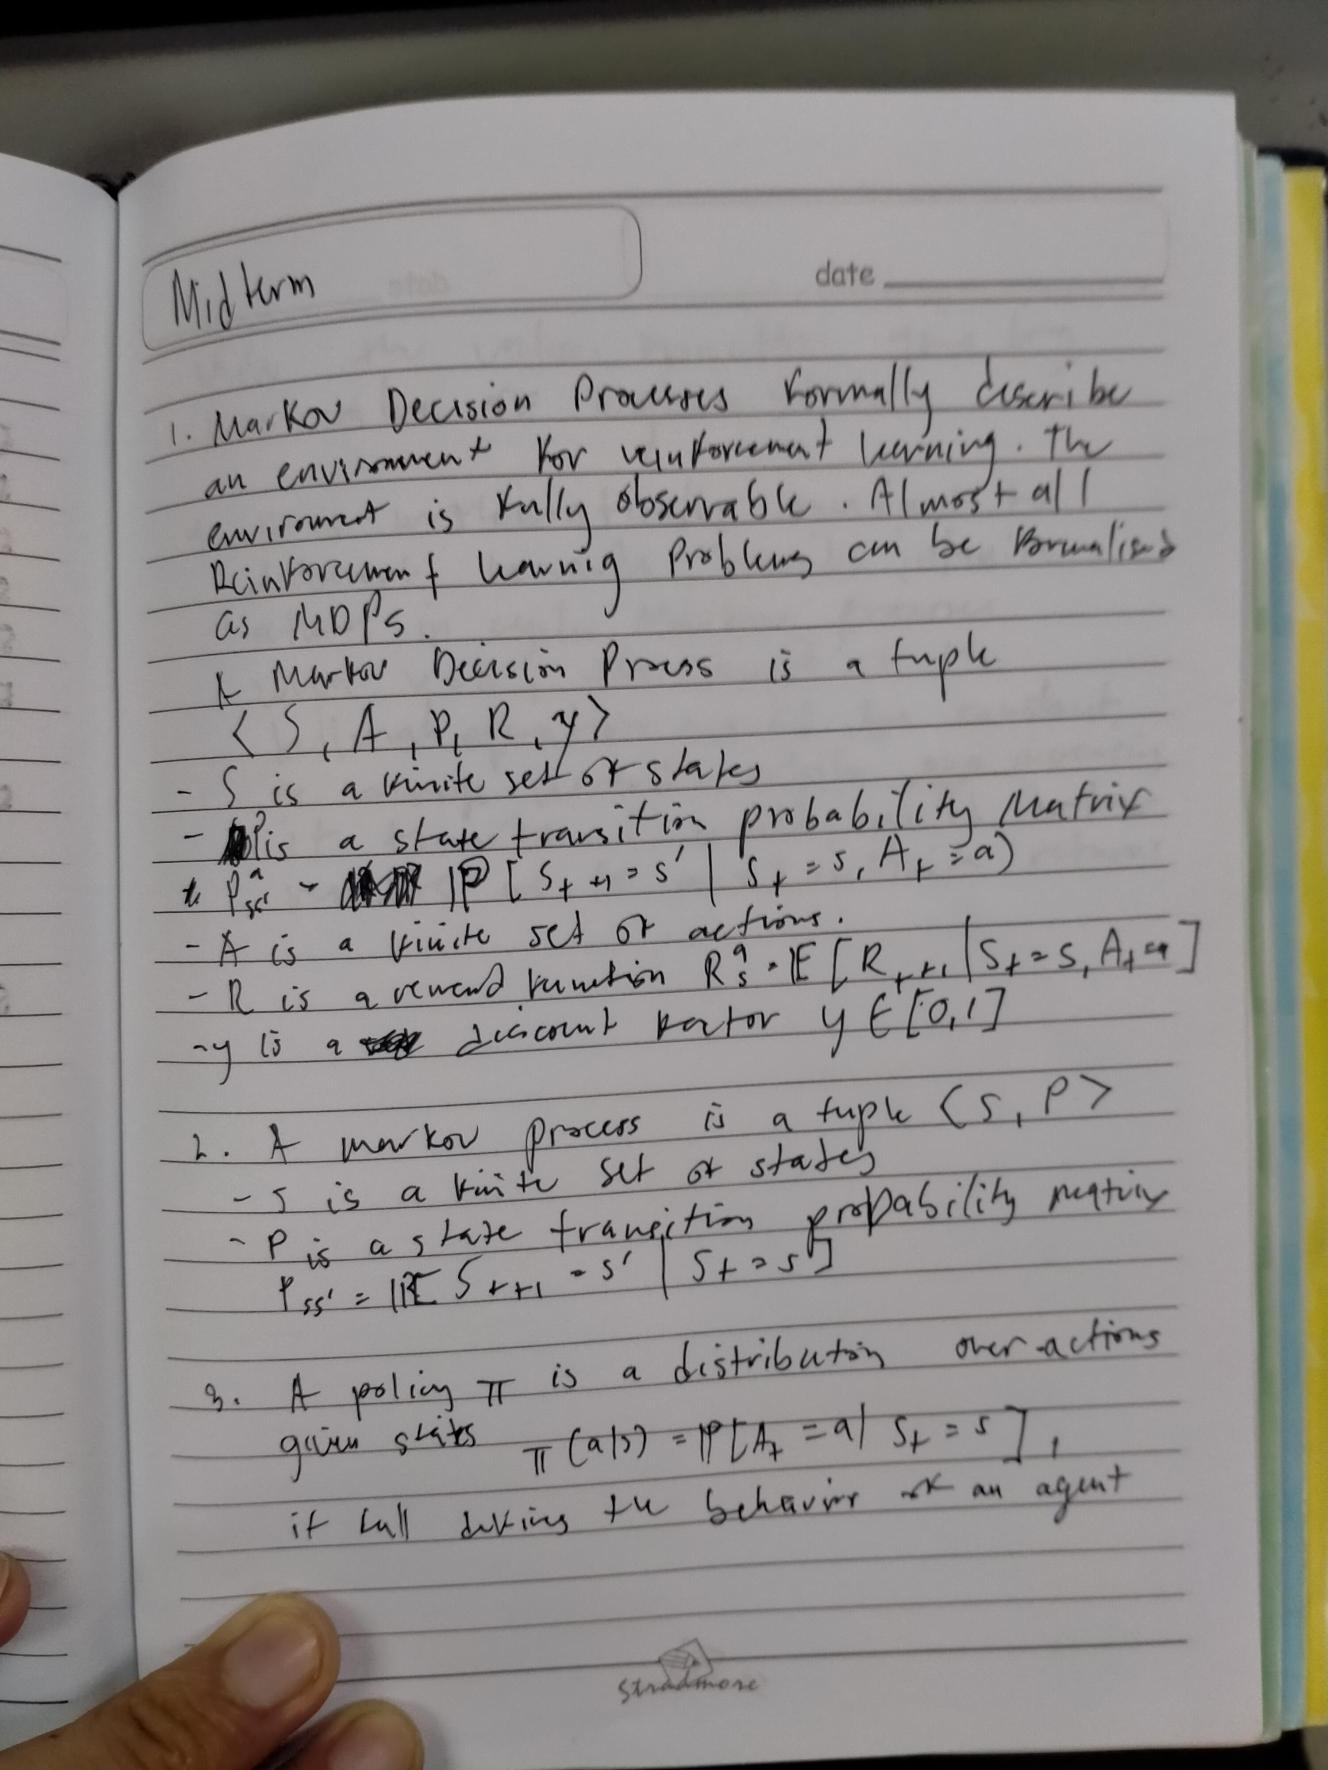 Midterm
date
1. Markov Decision Processes formally describe
an environment for reinforcement learning. The
enviroment is fully observable. Almost all
Reinforcement learnig problems can be formalised
as MDPs.
A Markov Decision Process is a tuple
⟨S, A, P, R, γ⟩
- S is a finite set of states
- P is a state transition probability Matrix
P^a_ss' = ℙ[S_t+1 = s' | S_t = s, A_t = a)
- A is a finite set of actions.
- R is a reward function R^a_s = 𝔼[R_t+1 | S_t = s, A_t = a]
- γ is a discount factor γ ∈ [0,1]
2. A markov process is a tuple ⟨S, P⟩
- S is a finite set of states
- P is a state transition probability matrix
P_ss' = ℙ[S_t+1 = s' | S_t = s]
3. A policy π is a distribution over actions
given states π(a|s) = ℙ[A_t = a | S_t = s],
it full defines the behavior of an agent
Stradmore